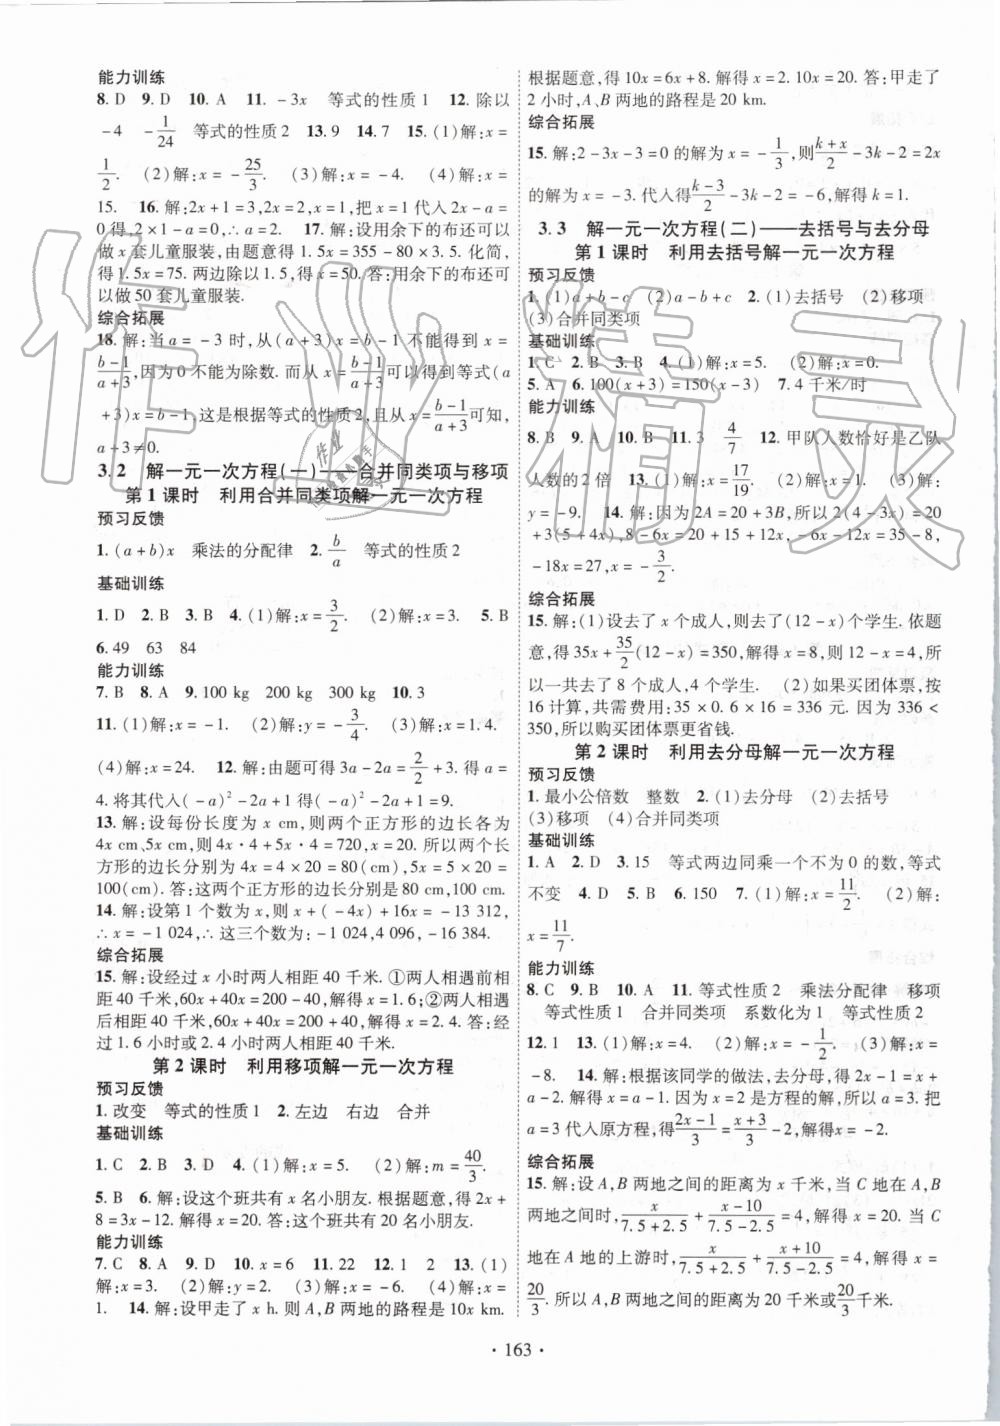 能力训练
8. D  9. D  10. A  11. －3x  等式的性质 1  12. 除以
－4  －1/24  等式的性质 2  13. 9  14. 7  15. (1)解:x＝
1/2.  (2)解:x＝－25/3.  (3)解:x＝－4.  (4)解:x＝
15.  16. 解:2x＋1＝3,2x＝2,x＝1,把 x＝1 代入 2x－a＝
0,得 2×1－a＝0,∴a＝2.  17. 解:设用余下的布还可以
做 x 套儿童服装,由题意得:1.5x＝355－80×3.5. 化简,
得:1.5x＝75. 两边除以 1.5,得 x＝50. 答:用余下的布还可
以做 50 套儿童服装.
综合拓展
18. 解:当 a＝－3 时,从(a＋3)x＝b－1 不能得到 x＝
b－1/a＋3,因为 0 不能为除数. 而从 x＝b－1/a＋3可以得到等式(a
＋3)x＝b－1,这是根据等式的性质 2,且从 x＝b－1/a＋3可知,
a＋3≠0.
3.2  解一元一次方程(一)——合并同类项与移项
第 1 课时  利用合并同类项解一元一次方程
预习反馈
1. (a＋b)x  乘法的分配律  2. b/a  等式的性质 2
基础训练
1. D  2. B  3. B  4. (1)解:x＝3/2.  (2)解:x＝3.  5. B
6. 49  63  84
能力训练
7. B  8. A  9. 100 kg  200 kg  300 kg  10. 3
11. (1)解:x＝－1.  (2)解:y＝－3/4.  (3)解:x＝1.4.
(4)解:x＝24.  12. 解:由题可得 3a－2a＝2/2＋3. 得 a＝
4. 将其代入(－a)²－2a＋1 得(－a)²－2a＋1＝9.
13. 解:设每份长度为 x cm,则两个正方形的边长各为
4x cm、5x cm,则 4x·4＋5x·4＝720. 所以两个长
方形的边长分别为 4x＝4×20＝80(cm),5x＝5×20＝
100(cm). 答:这两个正方形的边长分别是 80 cm,100 cm.
14. 解:设第 1 个数为 x,则 x＋(－4x)＋16x＝－13 312,
∴x＝－1 024,∴这三个数为:－1 024,4 096,－16 384.
综合拓展
15. 解:设经过 x 小时两人相距 40 千米. ①两人相遇前相
距 40 千米,60x＋40x＝200－40,解得 x＝1.6;②两人相遇
后相距 40 千米,60x＋40x＝200＋40,解得 x＝2.4. 答:经
过 1.6 小时或 2.4 小时两人相距 40 千米.
第 2 课时  利用移项解一元一次方程
预习反馈
1. 改变  等式的性质 1  2. 左边  右边  合并
基础训练
1. C  2. B  3. D  4. (1)解:x＝5.  (2)解:m＝40/3.
5. B  6. 解:设这个班共有 x 名小朋友. 根据题意,得 2x＋
8＝3x－12. 解得 x＝20. 答:这个班共有 20 名小朋友.
能力训练
7. C  8. A  9. D  10. x＝6  11. 22  12. 1  2  13. (1)
解:x＝3.  (2)解:y＝2.  (3)解:x＝－6.  (4)解:x＝
1.  14. 解:设甲走了 x h. 则 A、B 两地的路程是 10x km.
根据题意,得 10x＝6x＋8. 解得 x＝2. 10x＝20. 答:甲走了
2 小时,A、B 两地的路程是 20 km.
综合拓展
15. 解:2－3x－3＝0 的解为 x＝－1/3,则k＋x/2－3k－2＝2x
的解为 x＝－3. 代入得k－3/2－3k－2＝－6,解得 k＝1.
3.3  解一元一次方程(二)——去括号与去分母
第 1 课时  利用去括号解一元一次方程
预习反馈
1. (1)a＋b－c  (2)a－b＋c  2. (1)去括号  (2)移项
(3)合并同类项
基础训练
1. C  2. B  3. B  4. (1)解:x＝5.  (2)解:x＝0.
5. A  6. 100(x＋3)＝150(x－3)  7. 4 千米/时
能力训练
8. B  9. A  10. B  11. 3  4/7  12. 甲队人数恰好是乙队
人数的 2 倍  13. (1)解:x＝17/19.  (2)解:x＝9.  (3)解:
y＝－9.  14. 解:因为 2A＝20＋3B,所以 2(4－3x)＝20
＋3(5＋4x),8－6x＝20＋15＋12x,－6x－12x＝35－8,
－18x＝27,x＝－3/2.
综合拓展
15. 解:(1)设去了 x 个成人,则去了(12－x)个学生. 依题
意,得 35x＋35/2(12－x)＝350,解得 x＝8,则 12－x＝4,所
以一共去了 8 个成人,4 个学生.  (2)如果买团体票,按
16 计算,共需费用:35×0.6×16＝336 元. 因为 336＜
350,所以购买团体票更省钱.
第 2 课时  利用去分母解一元一次方程
预习反馈
1. 最小公倍数  整数  2. (1)去分母  (2)去括号
(3)移项  (4)合并同类项
基础训练
1. A  2. D  3. 15  等式两边同乘一个不为 0 的数,等式
不变  4. D  5. B  6. 150  7. (1)解:x＝11/2.  (2)解:
x＝11/7.
能力训练
8. C  9. B  10. A  11. 等式性质 2  乘法分配律  移项
等式性质 1  合并同类项  系数化为 1  等式性质 2
12. 1  13. (1)解:x＝4.  (2)解:x＝－1/2.  (3)解:x＝
－8.  14. 解:根据该同学的做法,去分母,得 2x－1＝x＋
a－2. 解得 x＝a－1. 因为 x＝2 是方程的解,所以 a＝3. 把
a＝3 代入原方程,得2x－1/3＝x＋3/3－2,解得 x＝－2.
综合拓展
15. 解:设 A、B 两地之间的距离为 x 千米,当 C 地在 A、B
两地之间时,x/7.5＋2.5＋x－10/7.5－2.5＝4,解得 x＝20. 当 C
地在 A 地的上游时,x/7.5＋2.5＋x＋10/7.5－2.5＝4,解得 x＝
20/3. 所以 A、B 两地之间的距离为 20 千米或20/3千米.
· 163 ·
作业精灵